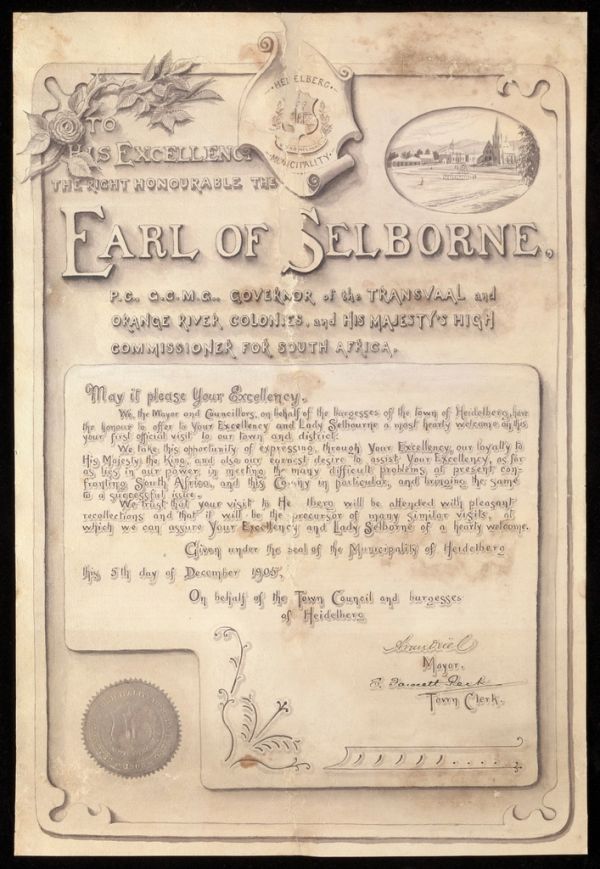 HEIDELBERG
MUNICIPALITY
TO
HIS EXCELLENCY
THE RIGHT HONOURABLE THE
EARL OF SELBORNE,
P.C., G.C.M.G., GOVERNOR of the TRANSVAAL and
ORANGE RIVER COLONIES, and HIS MAJESTY'S HIGH
COMMISSIONER FOR SOUTH AFRICA.
May it please Your Excellency,
We, the Mayor and Councillors, on behalf of the burgesses of the town of Heidelberg, have
the honour to offer to Your Excellency and Lady Selbourne a most hearty welcome on this
your first official visit to our town and district.
We take this opportunity of expressing, through Your Excellency, our loyalty to
His Majesty the King, and also our earnest desire to assist Your Excellency, as far
as lies in our power, in meeting the many difficult problems at present con-
fronting South Africa, and this Colony in particular, and bringing the same
to a successful issue.
We trust that your visit to Heidelberg will be attended with pleasant
recollections and that it will be the precursor of many similar visits, at
which we can assure Your Excellency and Lady Selborne of a hearty welcome.
Given under the seal of the Municipality of Heidelberg
this 5th day of December 1905,
On behalf of the Town Council and burgesses
of Heidelberg
Mayor.
Town Clerk.